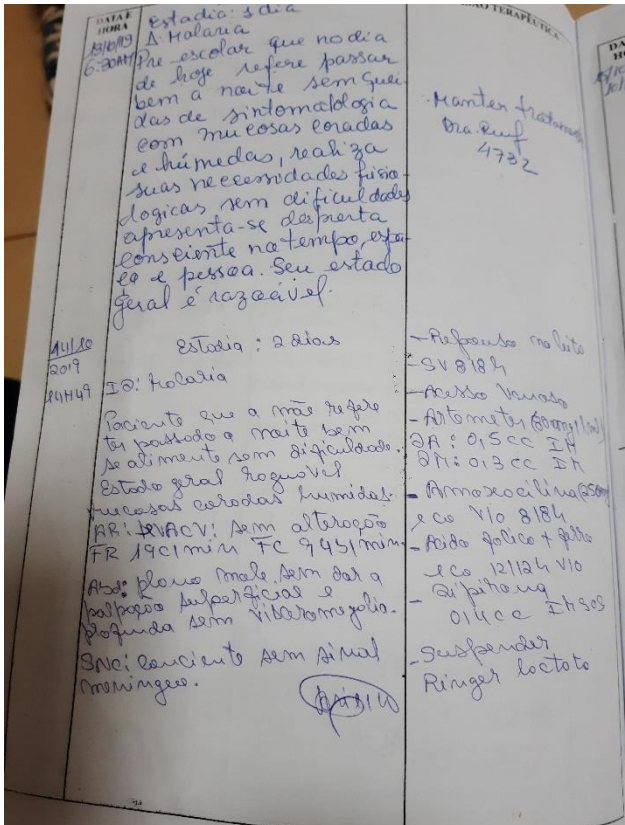 DATA E
HORA
ÃO TERAPÊUTICA
13/10/19
6:30AM
Estadia: 1 dia
Δ: Malaria
Pre escolar que no dia
de hoje refere passar
bem a noite sem quei
das de sintomatologia
com mucosas coradas
e húmedas, realiza
suas necessidades fisio-
logicas sem dificuldades
apresenta-se desperta
consciente no tempo, espa-
ço e pessoa. Seu estado
geral é razoável.
. Manter tratamento
Dra.
4732
14/10
2019
14H49
Estadia: 2 dias
ID: Malaria
Paciente que a mãe refere
ter passado a noite bem
se alimenta sem dificuldade.
Estado geral razoavel
mucosas coradas humidas.
AR: ACV: sem alteração
FR 19c/min FC 94
Abd: plano mole sem dor a
palpação superficial e
profunda sem visceromegalia.
SNC: conciente sem sinal
meningeo.
- Repouso no leito
- SV 8/8h
- Acesso Venoso
- Artemeter
2A: 0,5cc IM
2M: 0,3cc IM
- Amoxocilina (250mg)
cc V/O 8/8h
- Acido folico + ferro
cc 12/12h V/O
- Dipirona
0,4cc IM SOS
- Suspender
Ringer lactato